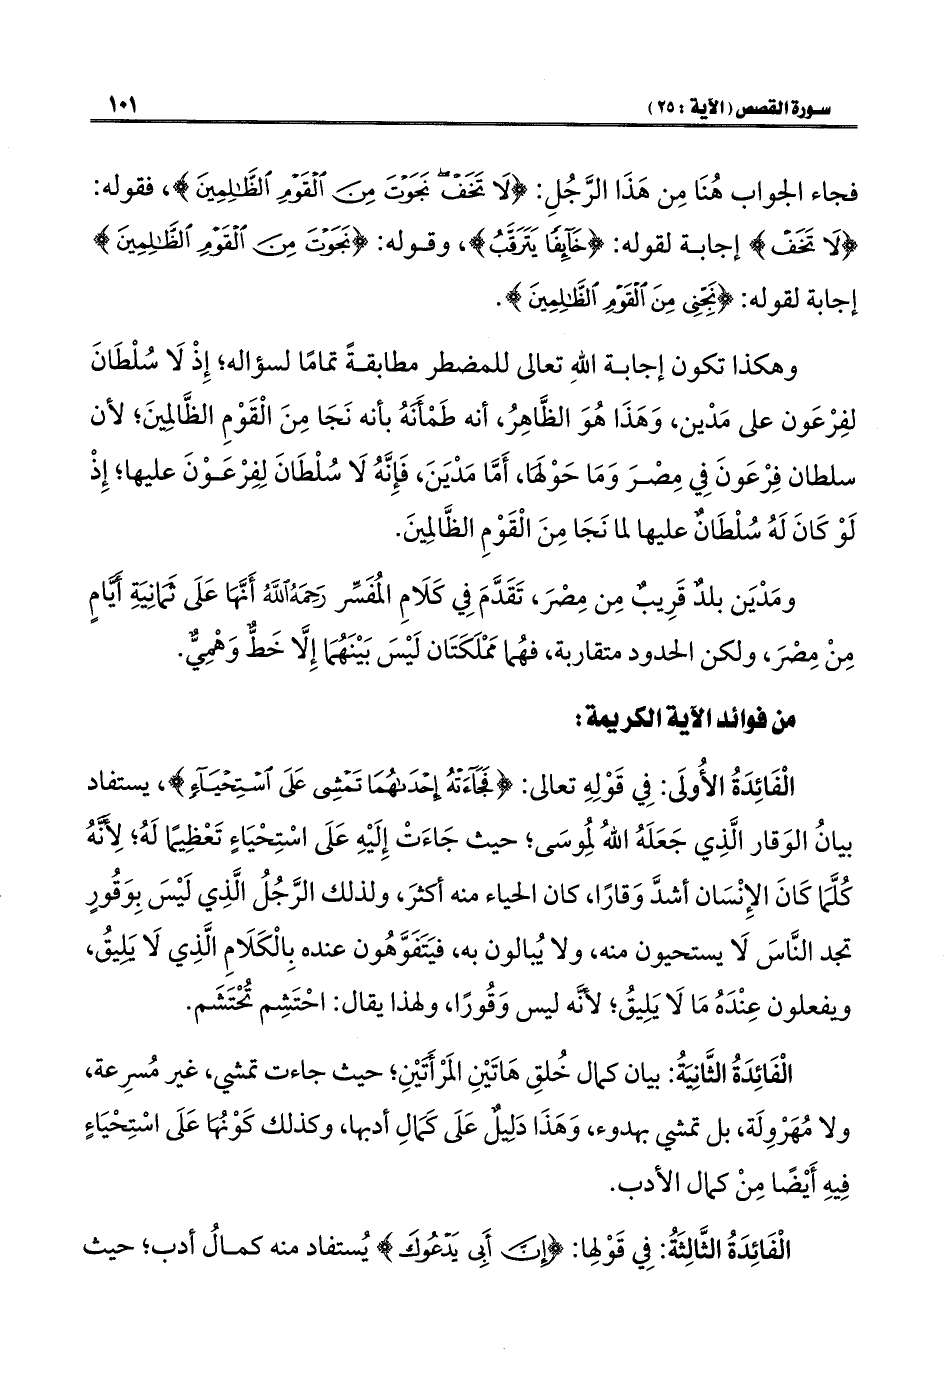 سورة القصص (الآية : ٢٥)
١٠١
فجاء الجواب هُنَا مِن هَذَا الرَّجُلِ: ﴿لَا تَخَفْ نَجَوْتَ مِنَ ٱلْقَوْمِ ٱلظَّٰلِمِينَ﴾، فقوله:
﴿لَا تَخَفْ﴾ إجابة لقوله: ﴿خَآئِفًا يَتَرَقَّبُ﴾، وقوله: ﴿نَجَوْتَ مِنَ ٱلْقَوْمِ ٱلظَّٰلِمِينَ﴾
إجابة لقوله: ﴿نَجِّنِى مِنَ ٱلْقَوْمِ ٱلظَّٰلِمِينَ﴾.
وهكذا تكون إجابة اللهِ تعالى للمضطر مطابقةً تمامًا لسؤاله؛ إِذْ لَا سُلْطَانَ
لفِرْعَون على مَدْين، وَهَذَا هُوَ الظَّاهِرُ، أنه طَمْأَنَهُ بأنه نَجَا مِنَ الْقَوْمِ الظَّالِمِينَ؛ لأن
سلطان فِرْعَونَ فِي مِصْرَ وَمَا حَوْلَهَا، أَمَّا مَدْيَنَ، فَإِنَّهُ لَا سُلْطَانَ لِفِرْعَوْنَ عليها؛ إِذْ
لَوْ كَانَ لَهُ سُلْطَانٌ عليها لما نَجَا مِنَ الْقَوْمِ الظَّالِمِينَ.
ومَدْيَن بلدٌ قَرِيبٌ مِن مِصْرَ، تَقَدَّمَ فِي كَلَامِ المُفَسِّر رَحِمَهُ اللَّهُ أَنَّهَا عَلَى ثَمَانِيَةِ أَيَّامٍ
مِنْ مِصْرَ، ولكن الحدود متقاربة، فهُما مَمْلَكَتَان لَيْسَ بَيْنَهُمَا إِلَّا خَطٌّ وَهْمِيٌّ.
من فوائد الآية الكريمة:
الْفَائِدَةُ الأُولَى: فِي قَوْلِهِ تعالى: ﴿فَجَآءَتْهُ إِحْدَىٰهُمَا تَمْشِى عَلَى ٱسْتِحْيَآءٍ﴾، يستفاد
بيانُ الوَقار الَّذِي جَعَلَهُ اللهُ لِمُوسَى؛ حيث جَاءَتْ إِلَيْهِ عَلَى اسْتِحْيَاءٍ تَعْظِيمًا لَهُ؛ لِأَنَّهُ
كُلَّمَا كَانَ الإِنْسَان أشدَّ وَقارًا، كان الحياء منه أكثرَ، ولذلك الرَّجُلُ الَّذِي لَيْسَ بِوَقُورٍ
تجد النَّاسَ لَا يستحيون منه، ولا يُبالون به، فيَتَفَوَّهُون عنده بِالْكَلَامِ الَّذِي لَا يَلِيقُ،
ويفعلون عِنْدَهُ مَا لَا يَلِيقُ؛ لأنَّه ليس وَقُورًا، ولهذا يقال: احْتَشِم تُحْتَشَم.
الْفَائِدَةُ الثَّانِيَةُ: بيان كمال خُلقِ هَاتَيْنِ المَرْأَتَيْنِ؛ حيث جاءت تمشي، غير مُسرِعة،
ولا مُهَرْوِلَة، بل تمشي بهدوء، وَهَذَا دَلِيلٌ عَلَى كَمَالِ أدبها، وكذلك كَوْنُهَا عَلَى اسْتِحْيَاءٍ
فِيهِ أَيْضًا مِنْ كمال الأدب.
الْفَائِدَةُ الثَّالِثَةُ: فِي قَوْلِها: ﴿إِنَّ أَبِى يَدْعُوكَ﴾ يُستفاد منه كمالُ أدب؛ حيث